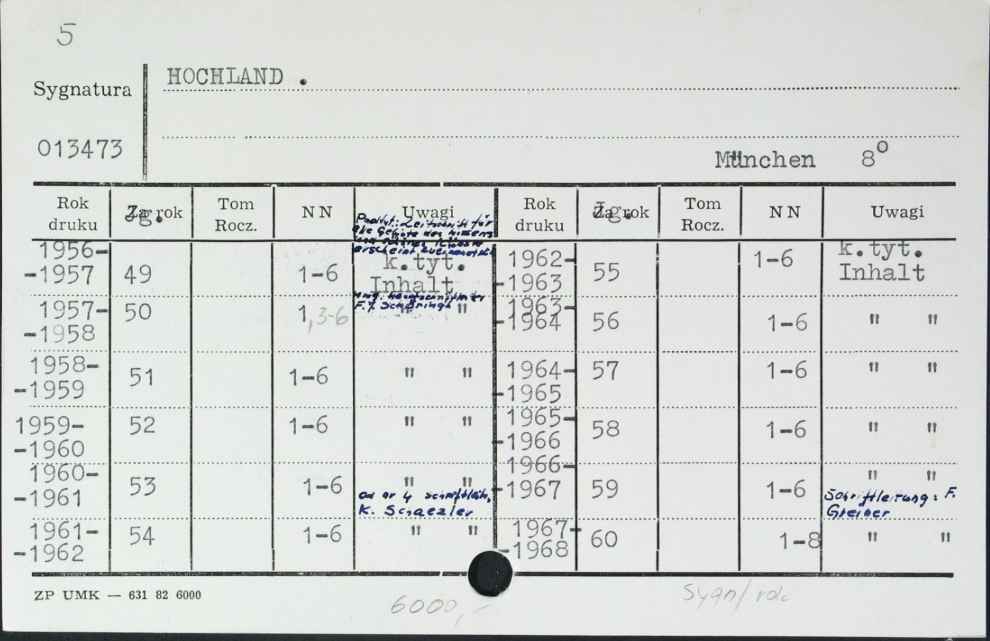 5
Sygnatura
HOCHLAND .
013473
München 8°
Rok druku Zg. rok Tom Rocz. NN Uwagi Rok druku Zg. rok Tom Rocz. NN Uwagi
Podtyt.: Zeitschrift für
alle Gebiete des Wissens
erscheint zweimonatlich
1956-
-1957 49 1-6 k.tyt. Inhalt
1957-
-1958 50 1,3-6 " "
F. J. Schöningh
1958-
-1959 51 1-6 " "
1959-
-1960 52 1-6 " "
1960-
-1961 53 1-6 " "
od nr 4 schriftleit.
K. Schaezler
1961-
-1962 54 1-6 " "
1962-
-1963 55 1-6 k.tyt. Inhalt
1963-
1964 56 1-6 " "
1964-
-1965 57 1-6 " "
1965-
-1966 58 1-6 " "
1966-
-1967 59 1-6 " "
Schriftleitung: F.
Greiner
1967-
-1968 60 1-8 " "
ZP UMK — 631 82 6000
6000,-